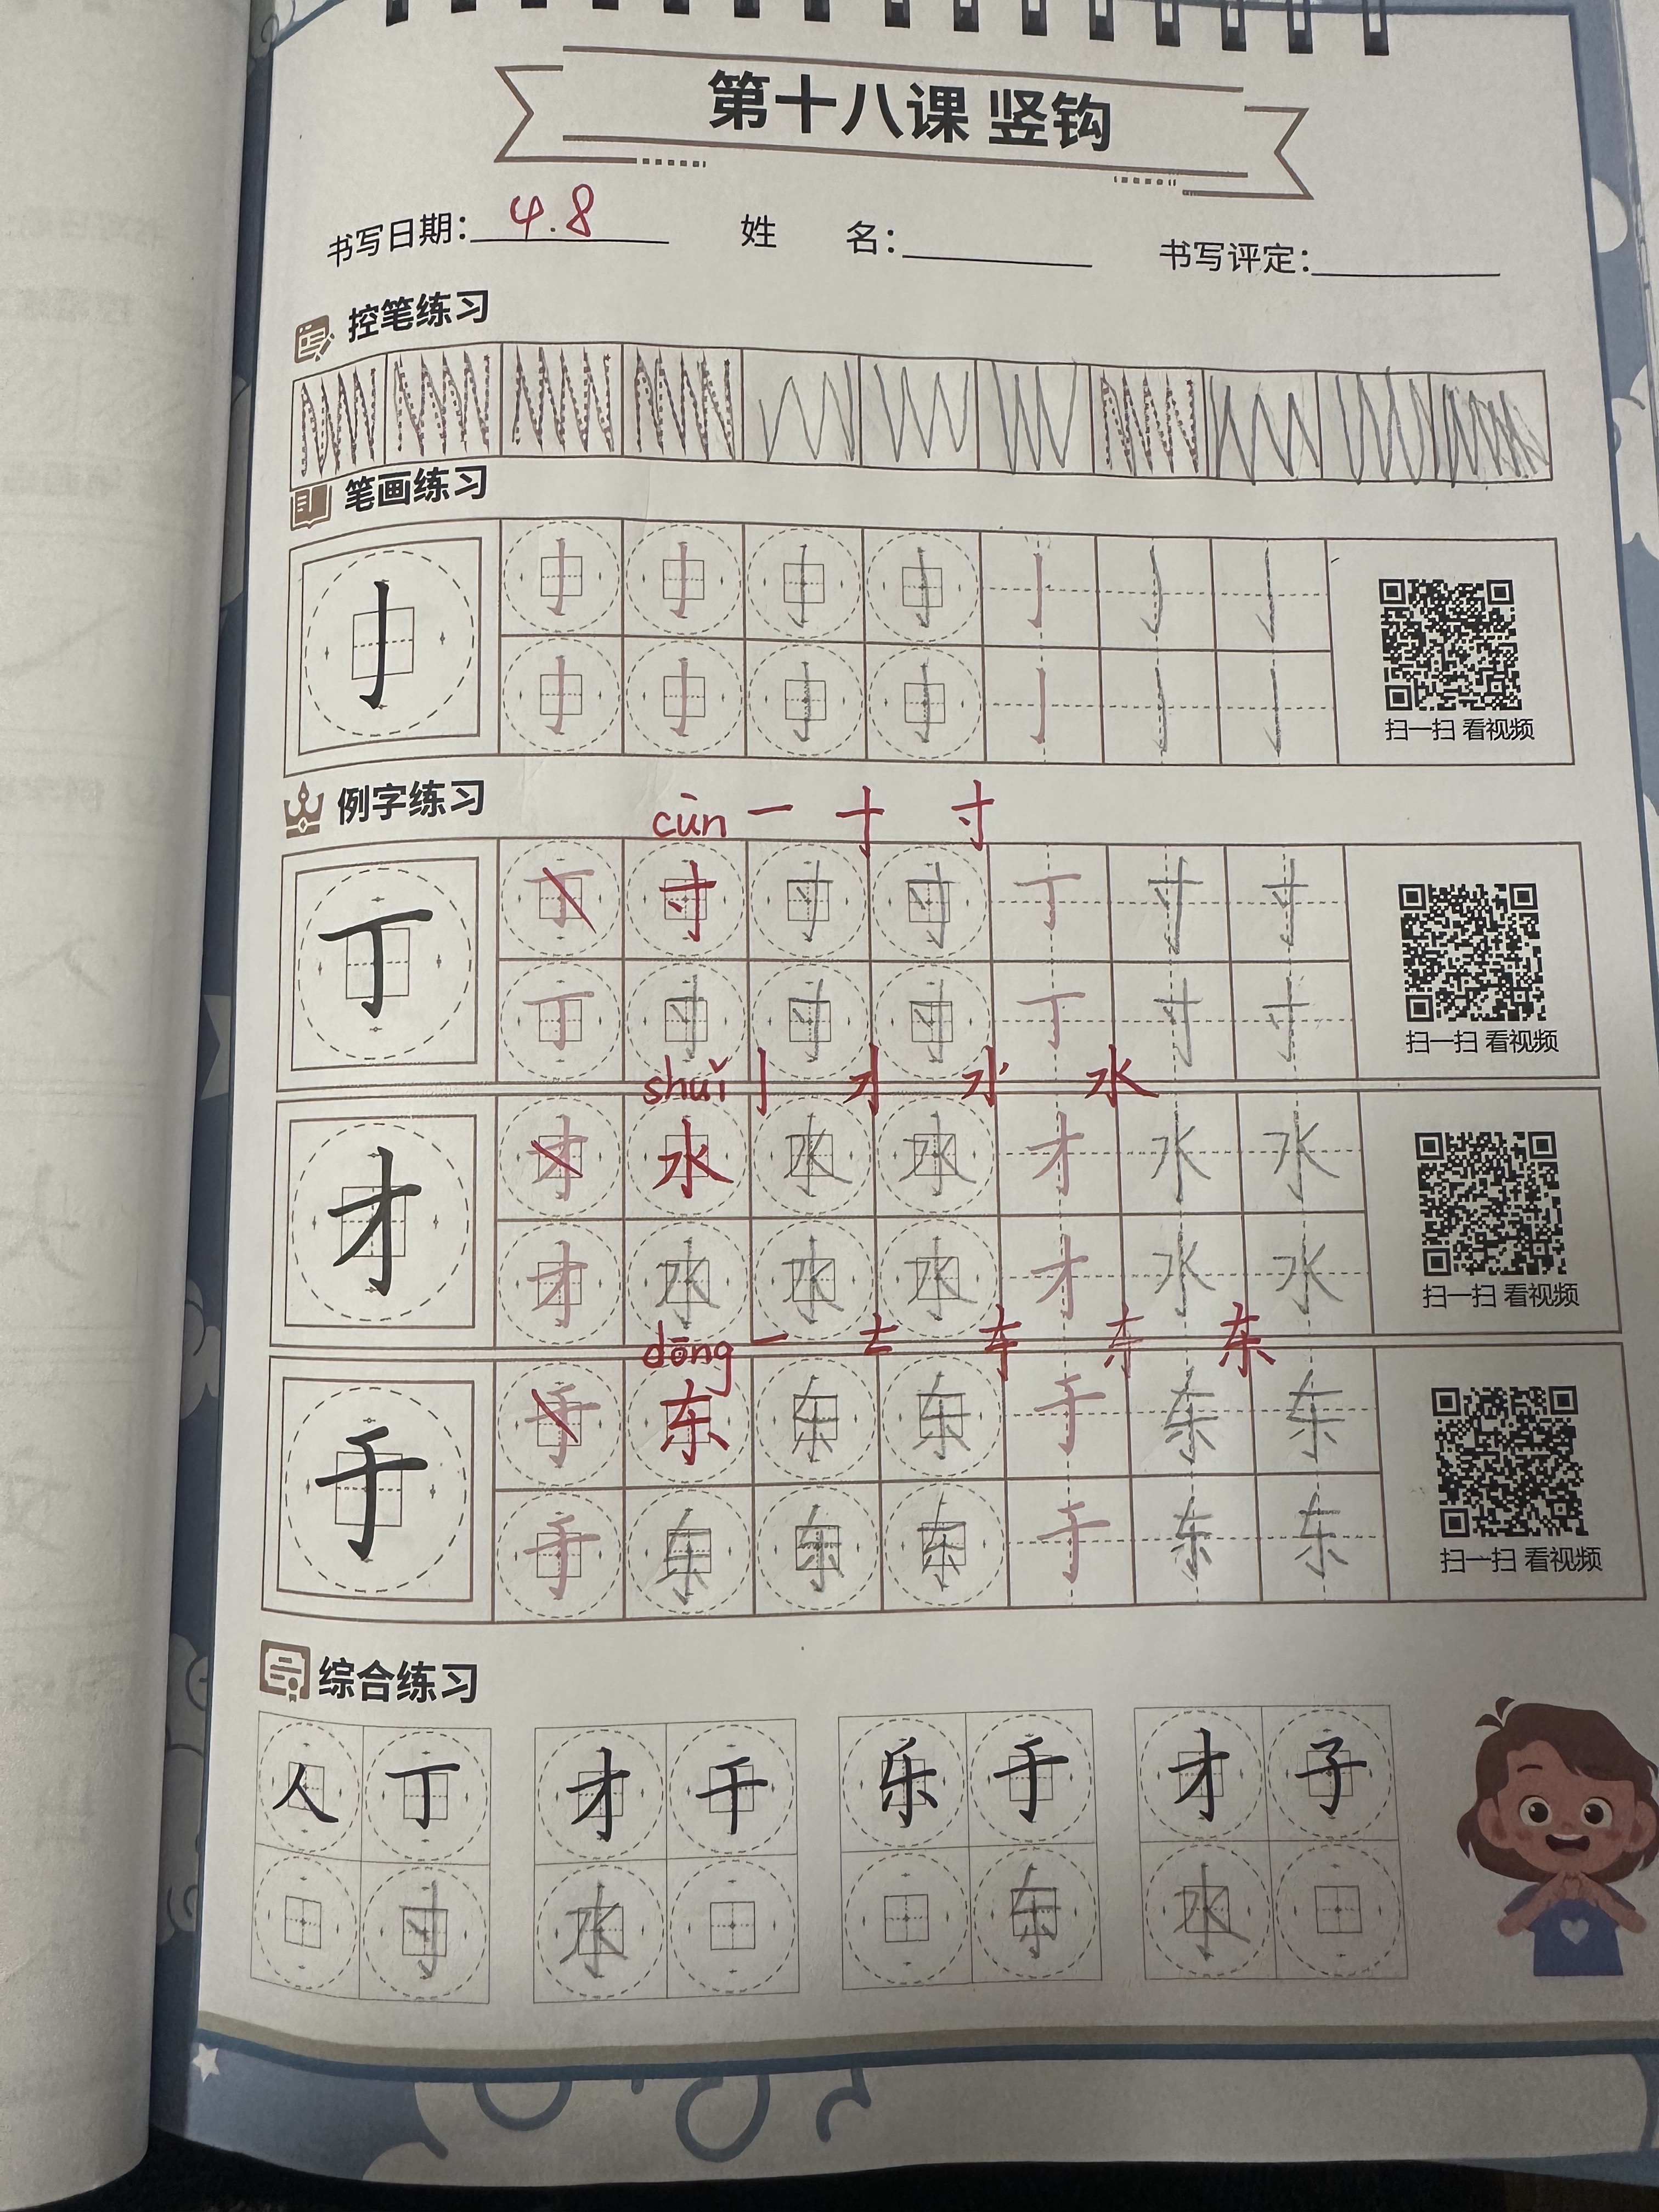 第十八课 竖钩
书写日期：4.8 姓 名： 书写评定：
控笔练习
笔画练习
亅 亅 亅 亅 亅 亅 亅 亅
亅 亅 亅 亅 亅 亅 亅
扫一扫 看视频
例字练习
cùn 一 十 寸
丁 丁 寸 寸 寸 丁 寸 寸
丁 寸 寸 寸 丁 寸 寸
扫一扫 看视频
shuǐ 亅 才 水
才 才 水 水 水 才 水 水
才 水 水 水 才 水 水
扫一扫 看视频
dōng 一 东
于 于 东 东 东 于 东 东
于 东 东 东 于 东 东
扫一扫 看视频
综合练习
人丁 才干 乐于 才子
寸 水 东 水